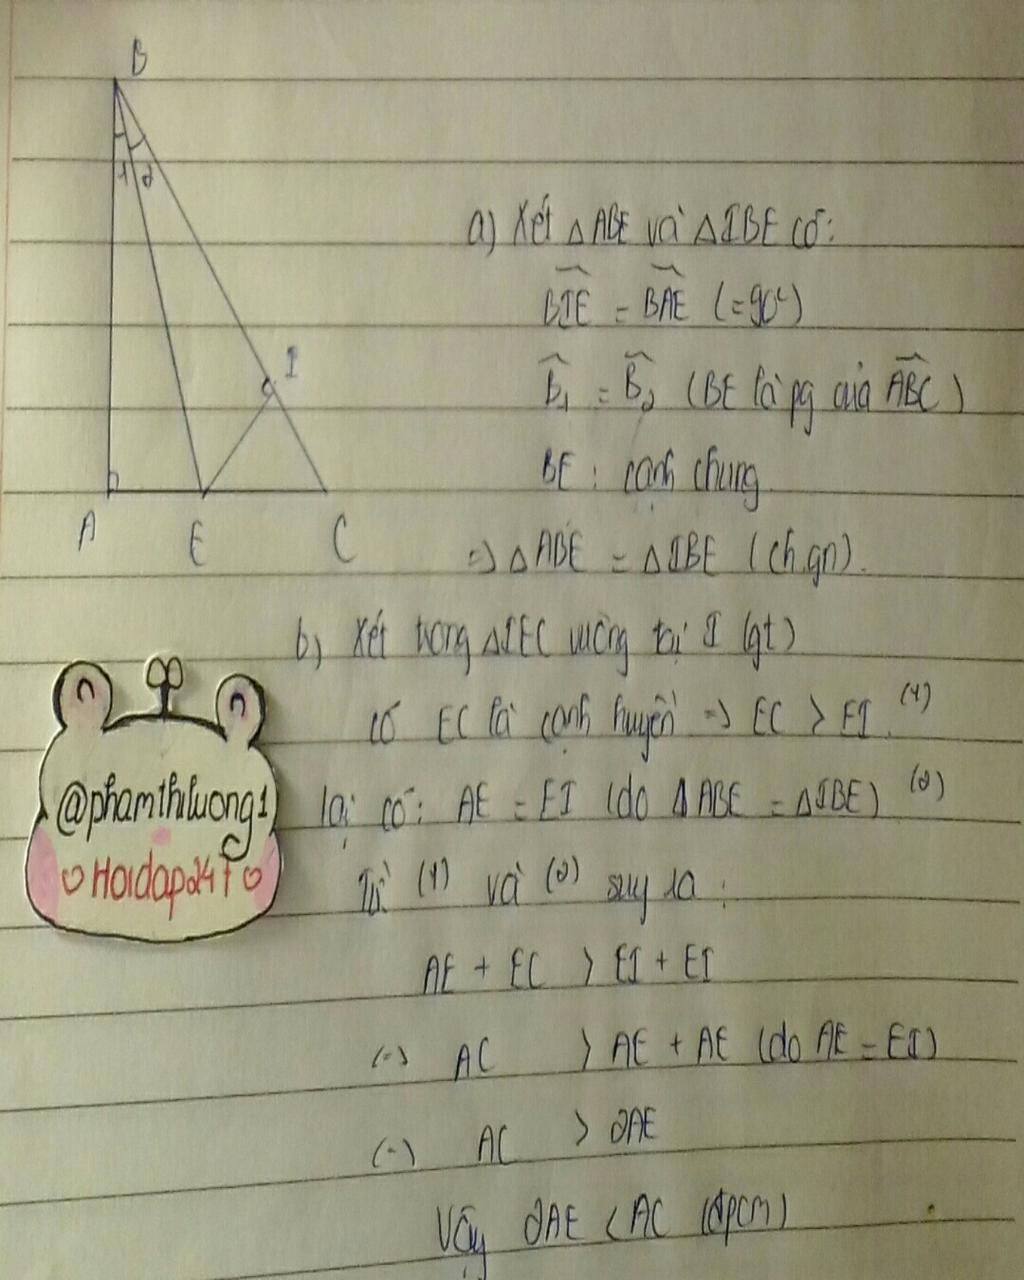 B
1 2
I
A E C
a) Xét △ABE và △IBE có:
BIE = BAE (=90°)
B̂₁ = B̂₂ (BE là pg của ABC)
BE : cạnh chung
=> △ABE = △IBE (ch.gn).
b) Xét trong △IEC vuông tại I (gt)
có EC là cạnh huyền => EC > EI (1)
lại có: AE = EI (do △ABE = △IBE) (2)
Từ (1) và (2) suy ra :
AE + EC > EI + EI
(=) AC > AE + AE (do AE = EI)
(=) AC > 2AE
Vậy 2AE < AC (đpcm)
@phamthiluong1
Hoidap247